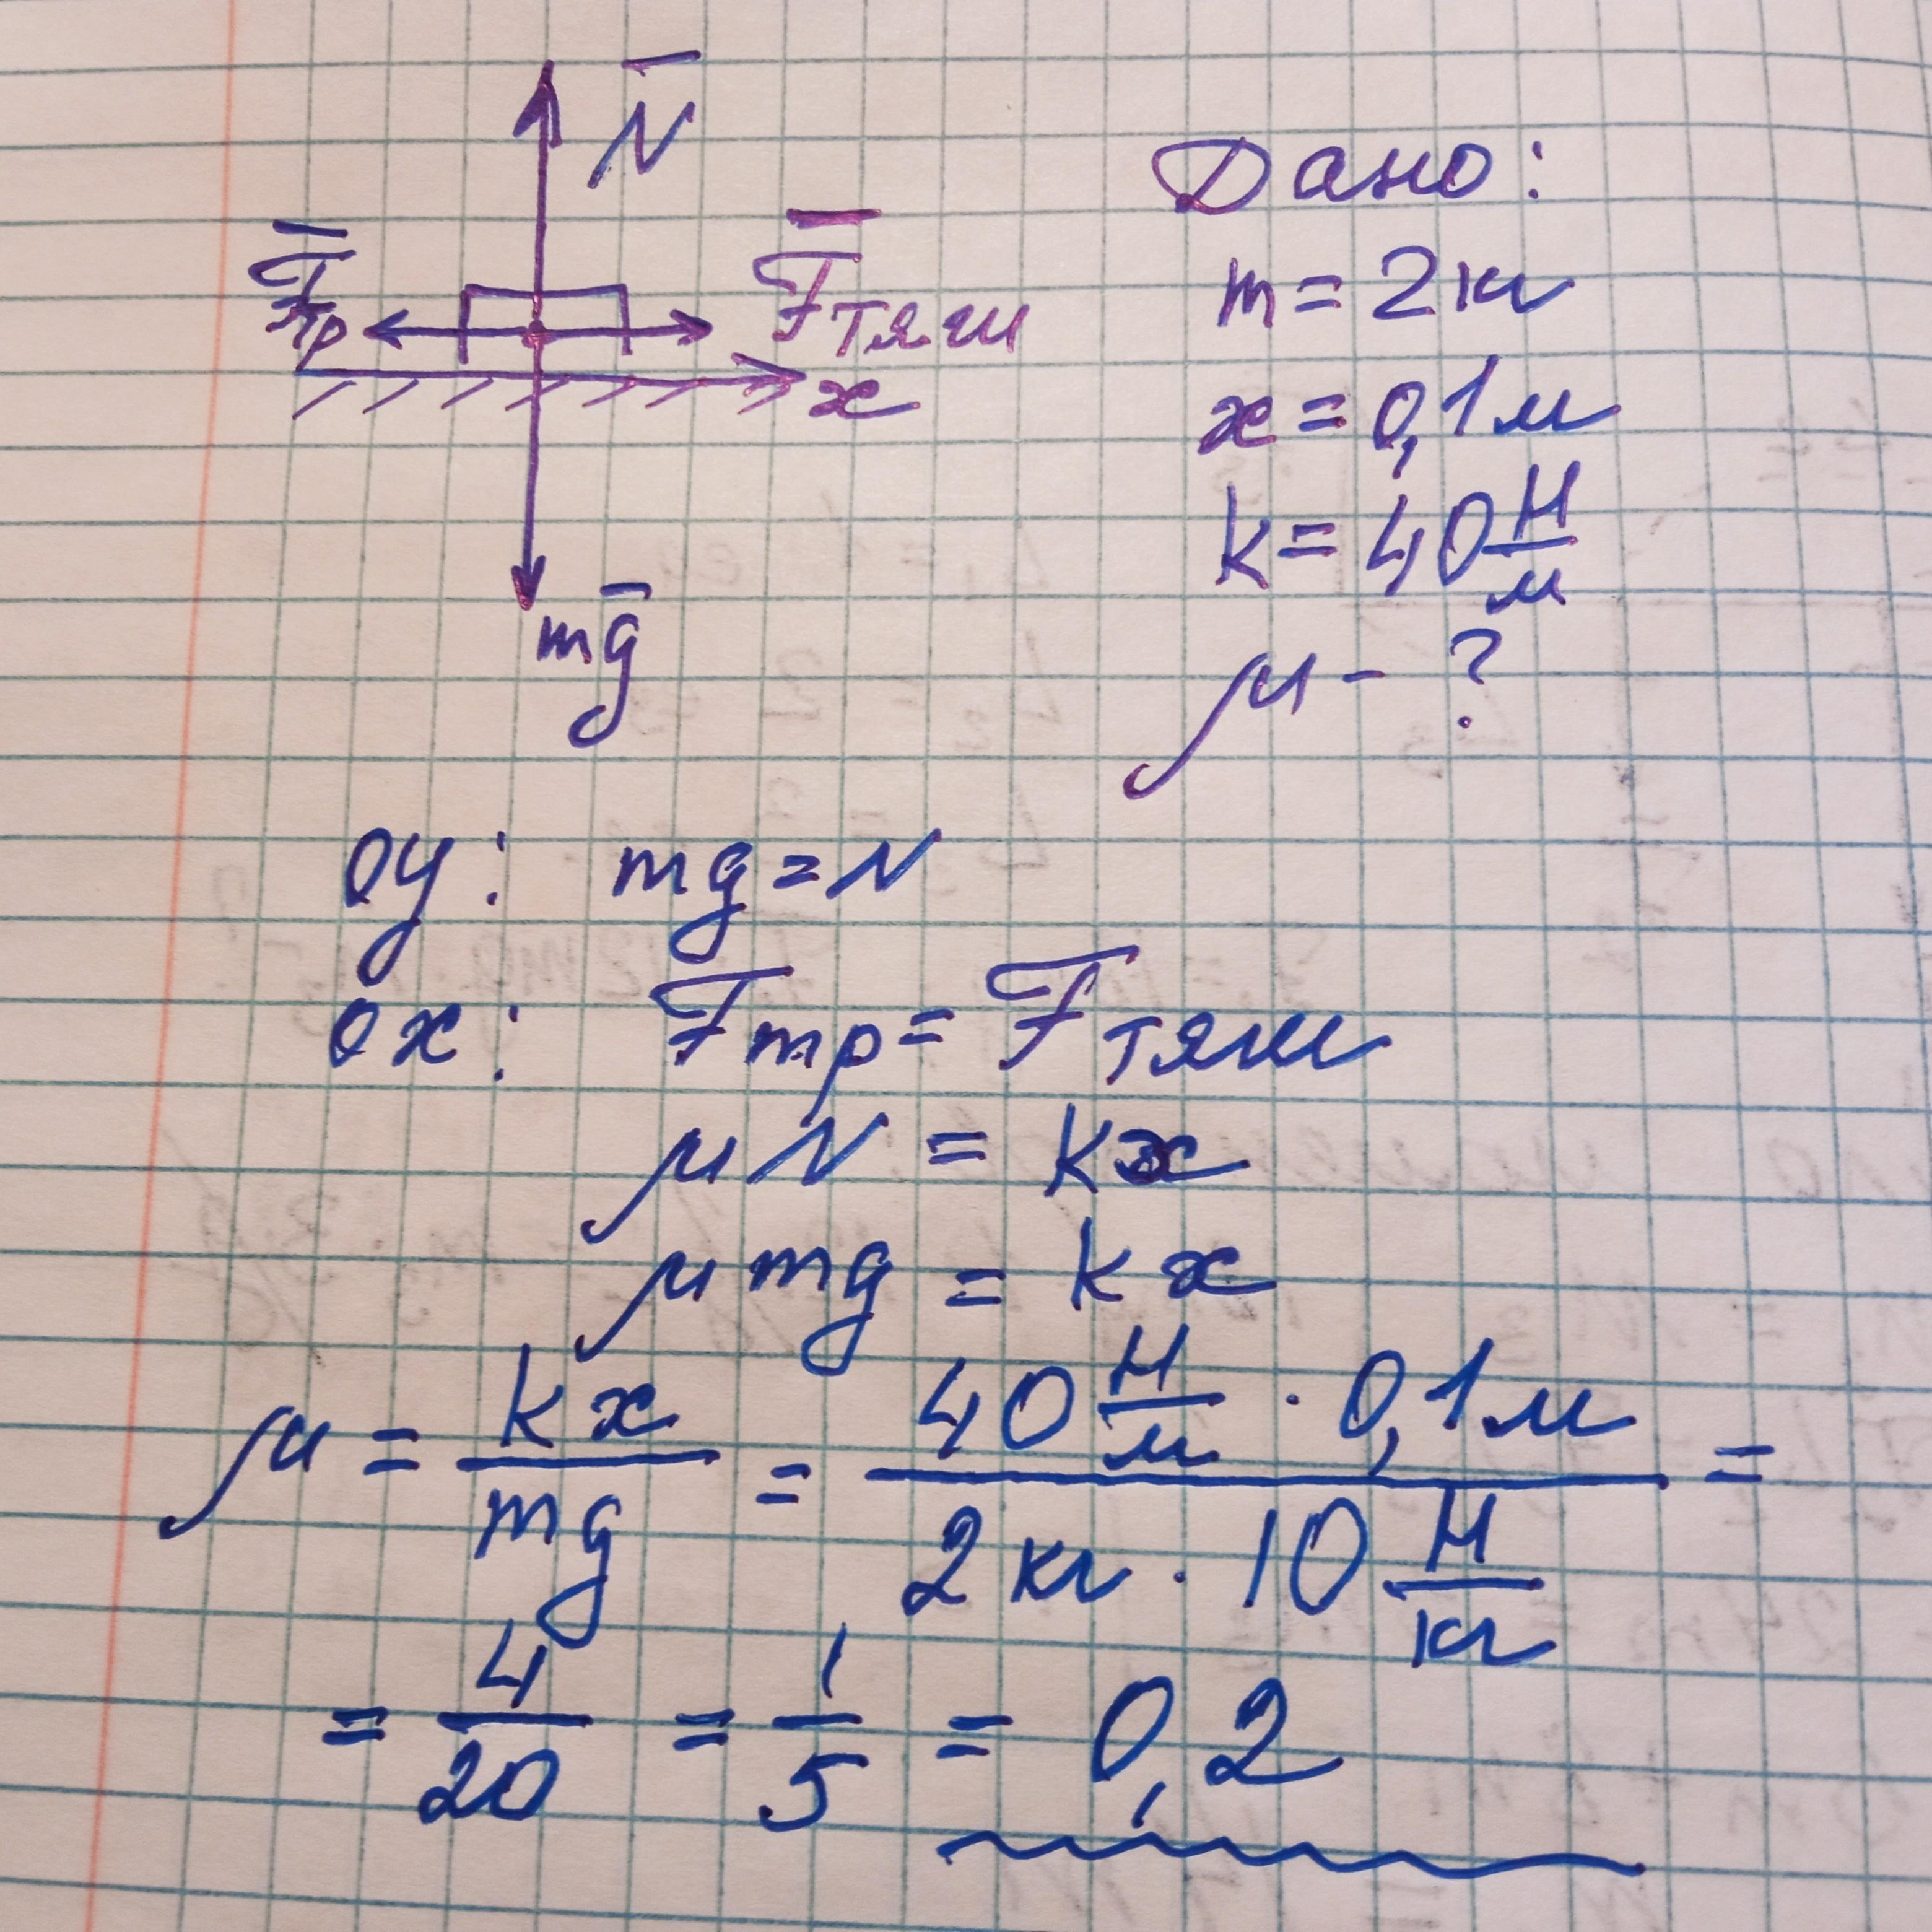 N̅
F̅тр
F̅тяги
x
mg̅
Дано:
m = 2 кг
x = 0,1 м
k = 40 Н/м
μ - ?
oy: mg = N
ox: Fтр = Fтяги
μN = kx
μmg = kx
μ = kx/mg = (40 Н/м · 0,1 м)/(2 кг · 10 Н/кг) =
= 4/20 = 1/5 = 0,2